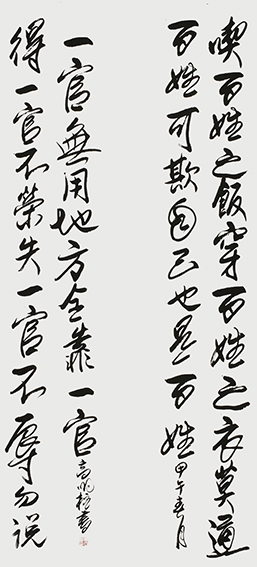 喫百姓之飯穿百姓之衣莫道
百姓可欺自己也是百姓
甲午春月
得一官不榮失一官不辱勿说
一官無用地方全靠一官